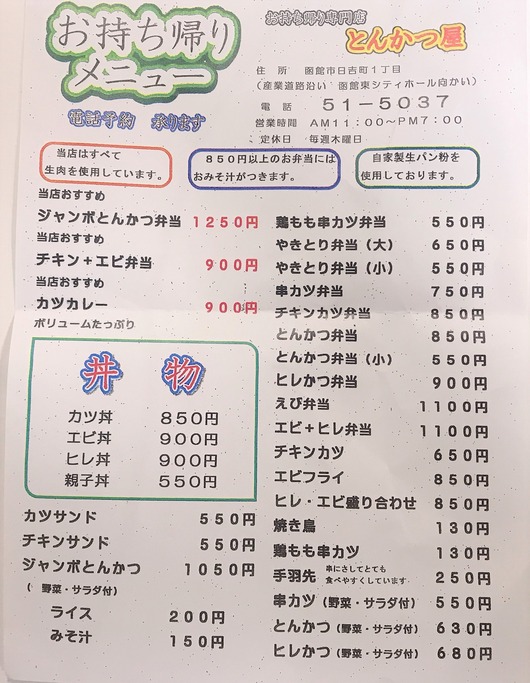 お持ち帰り
メニュー
電話予約 承ります
お持ち帰り専門店
とんかつ屋
住所 函館市日吉町1丁目
(産業道路沿い 函館東シティホール向かい)
電話 51-5037
営業時間 AM11:00~PM7:00
定休日 毎週木曜日
当店はすべて
生肉を使用しています。
850円以上のお弁当には
おみそ汁がつきます。
自家製生パン粉を
使用しております。
当店おすすめ
ジャンボとんかつ弁当 1250円
当店おすすめ
チキン+エビ弁当 900円
当店おすすめ
カツカレー 900円
ボリュームたっぷり
丼物
カツ丼 850円
エビ丼 900円
ヒレ丼 900円
親子丼 550円
カツサンド 550円
チキンサンド 550円
ジャンボとんかつ 1050円
(野菜・サラダ付)
ライス 200円
みそ汁 150円
鶏もも串カツ弁当 550円
やきとり弁当(大) 650円
やきとり弁当(小) 550円
串カツ弁当 750円
チキンカツ弁当 850円
とんかつ弁当 850円
とんかつ弁当(小) 550円
ヒレかつ弁当 900円
えび弁当 1100円
エビ+ヒレ弁当 1100円
チキンカツ 650円
エビフライ 850円
ヒレ・エビ盛り合わせ 850円
焼き鳥 130円
鶏もも串カツ 130円
手羽先 串にさしてとても食べやすくしています 250円
串カツ(野菜・サラダ付) 550円
とんかつ(野菜・サラダ付) 630円
ヒレかつ(野菜・サラダ付) 680円